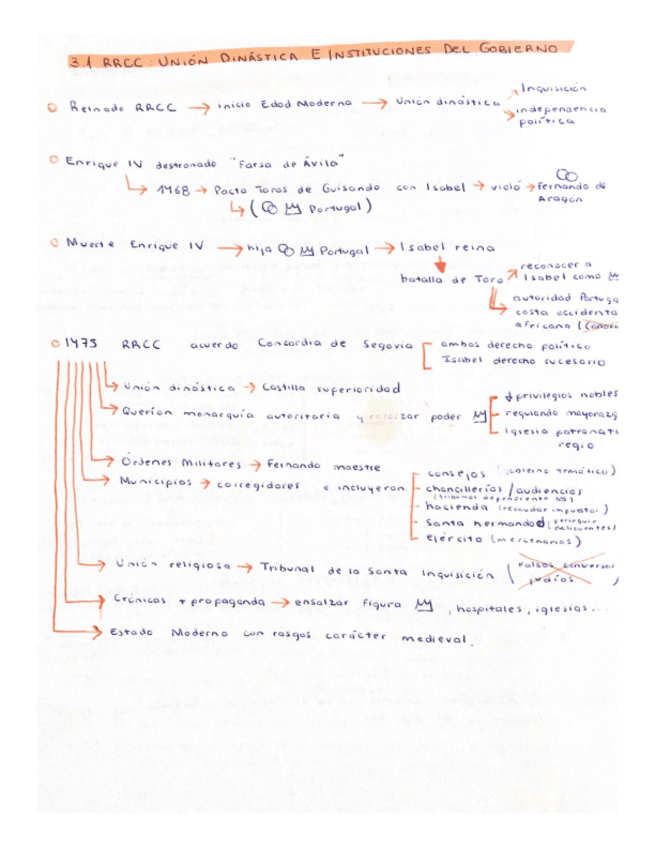 3.1 RRCC: UNIÓN DINÁSTICA E INSTITUCIONES DEL GOBIERNO
Reinado RRCC → inicio Edad Moderna → Unión dinástica → Inquisición
→ independencia política
Enrique IV destronado "Farsa de Ávila"
→ 1468 → Pacto Toros de Guisando con Isabel → violó → Fernando de Aragón
→ ( Portugal)
Muerte Enrique IV → hija Portugal → Isabel reina
batalla de Toro
reconocer a Isabel como
autoridad Portuga
costa occidenta
africana (
1475 RRCC acuerdo Concordia de Segovia
ambos derecho político
Isabel derecho sucesorio
→ Unión dinástica → Castilla superioridad
→ Querían monarquía autoritaria y reforzar poder
privilegios nobles
reguiando mayorazg
Iglesia patronat
regio
→ Órdenes Militares → Fernando maestre
→ Municipios → corregidores e incluyeron
consejos (gobierno temático)
chancillerías / audiencias
(tribunal dependiente
hacienda (recaudar impuestos)
Santa hermandad (perseguir delicuentes)
ejército (mercenarios)
→ Unión religiosa → Tribunal de la Santa Inquisición (Falsos conversos
judíos )
→ Crónicas + propaganda → ensalzar figura , hospitales, iglesias...
→ Estado Moderno con rasgos carácter medieval.